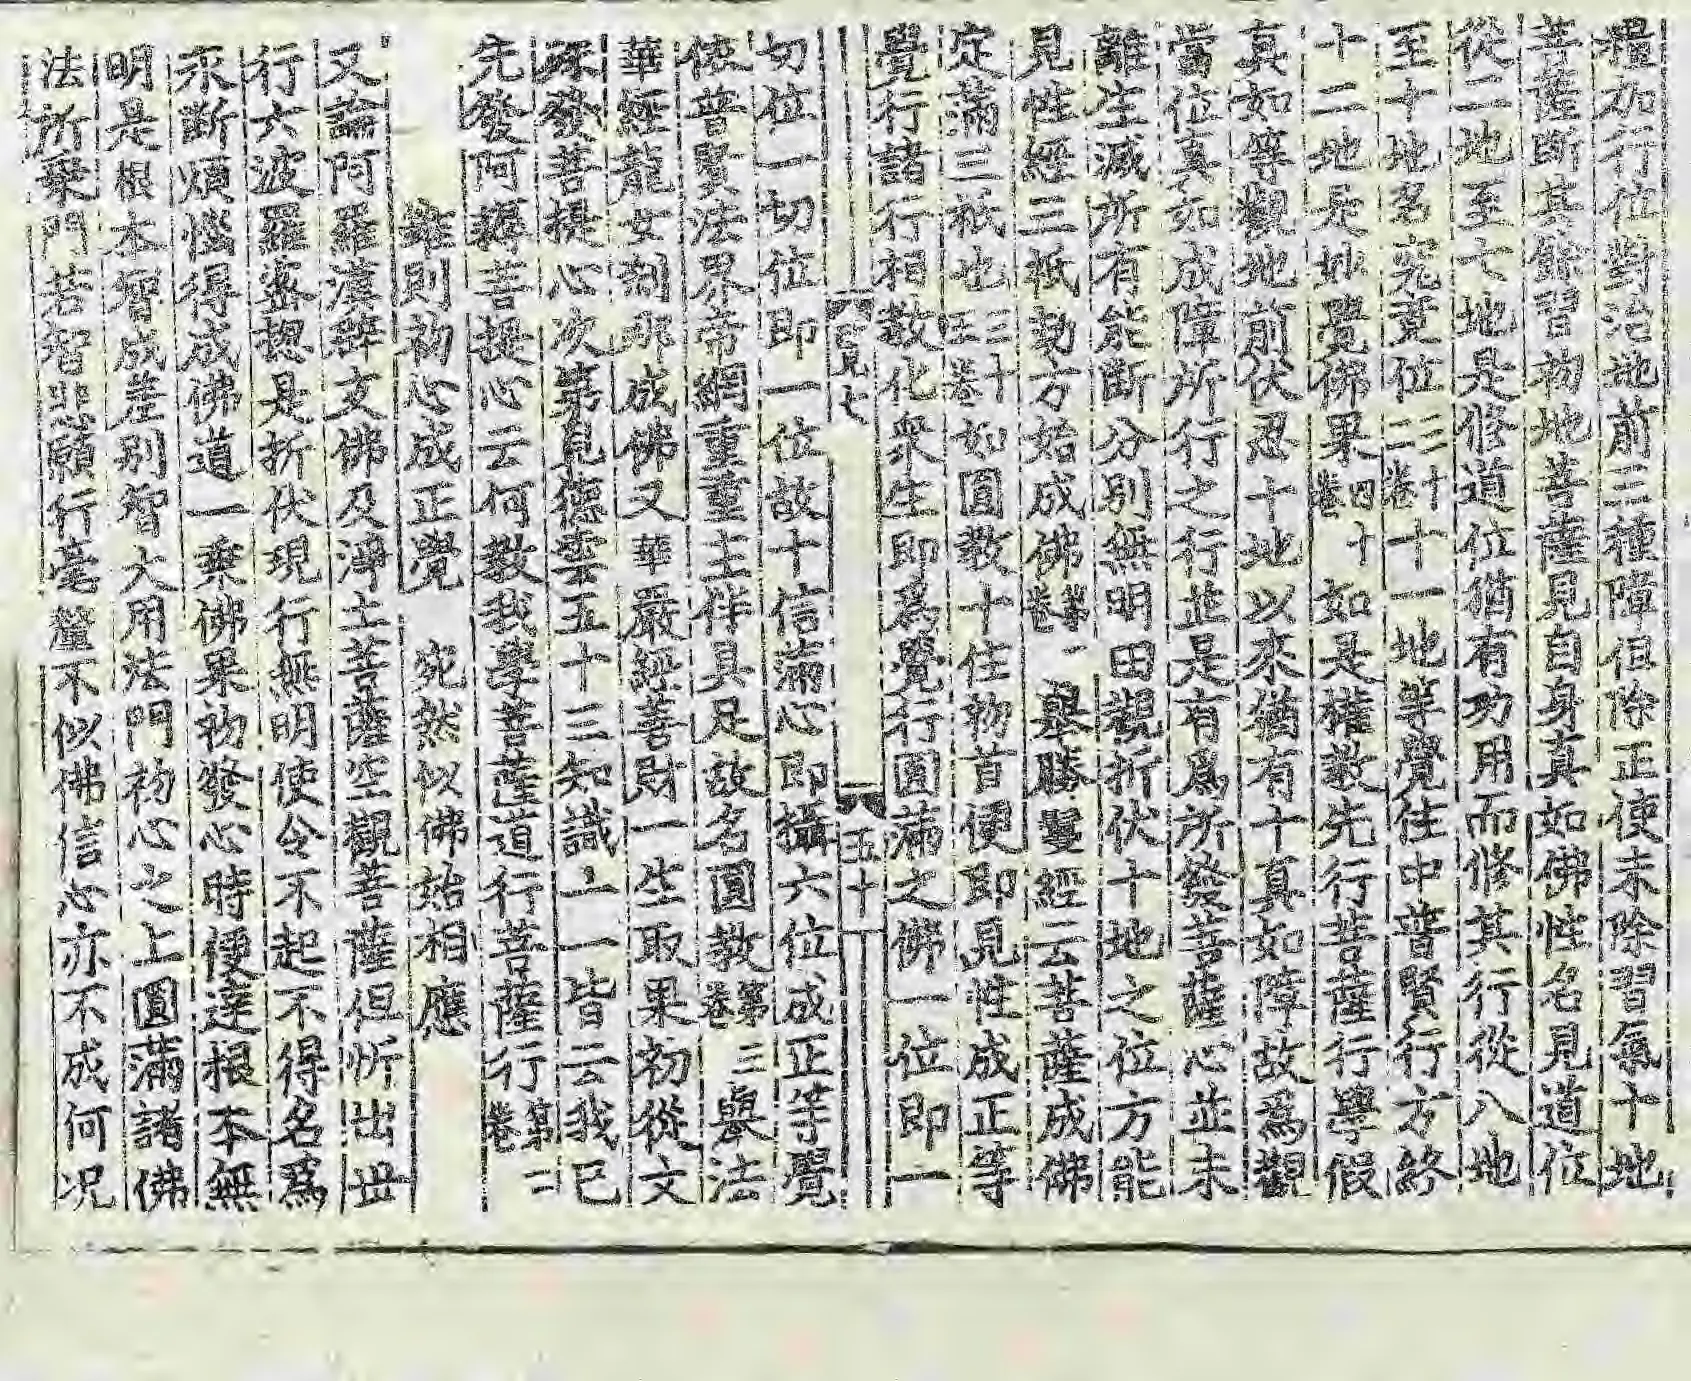 糧加行位對治地前三種障但除正使未除習氣十地
菩薩斷其餘習初地菩薩見自身真如佛性名見道位
從二地至七地是修道位猶有功用而修其行從八地
至十地名究竟位三十二卷十一地等覺位中普賢行方終
十二地是妙覺佛果四十卷如是權教先行菩薩行學假
真如等觀地前伏忍十地以來猶有十真如障故為觀
當位真如成障所行之行並是有為所發菩薩心並未
離生滅所有能斷分別無明田觀折伏十地之位方能
見性經三祇劫方始成佛第一卷舉勝鬘經云菩薩成佛
定滿三祇也三十五卷如圓教十住初首便即見性成正等
覺行諸行相教化衆生即為覺行圓滿之佛一位即一
覓七
五十
切位一切位即一位故十信滿心即攝六位成正等覺
依普賢法界帝網重重主伴具足故名圓教第三卷舉法
華經龍女刹那成佛又華嚴經善財一生取果初從文
殊發菩提心次第見德雲五十三知識一一皆云我已
先發阿耨菩提心云何教我學菩薩道行菩薩行第二卷
雖則初心成正覺 宛然似佛始相應
又論阿羅漢辟支佛及淨土菩薩空觀菩薩但忻出世
行六波羅蜜揔是折伏現行無明使令不起不得名為
永斷煩惱得成佛道一乗佛果初發心時便達根本無
明是根本智成差別智大用法門初心之上圓滿諸佛
法所乗門若智悲願行毫釐不似佛信心亦不成何况